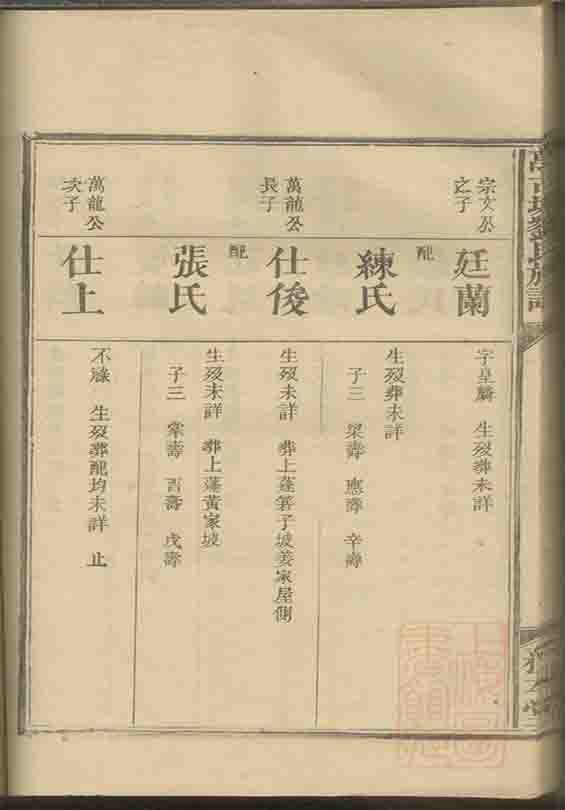 宗文公
之子
廷蘭
字皇麟 生歿葬未詳
配
練氏
生歿葬未詳
子三 梁壽 應壽 辛壽
萬龍公
長子
仕俊
生歿未詳 葬上蓬箬子坡姜家屋側
配
張氏
生歿未詳 葬上蓬黃家坡
子三 棠壽 百壽 戌壽
萬龍公
次子
仕上
不祿 生歿葬配均未詳 止